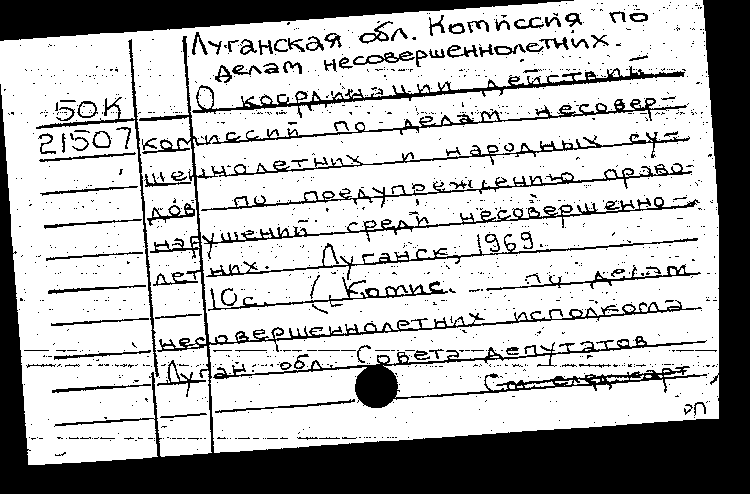 Луганская обл. Комиссия по
делам несовершеннолетних.
50К
21507
О координации действий
комиссий по делам несовер-
шеннолетних и народных су-
дов по предупреждению право-
нарушений среди несовершенно-
летних. Луганск, 1969.
10с. (Комис. по делам
несовершеннолетних исполкома
Луган. обл. Совета депутатов
См. след. карт
РП